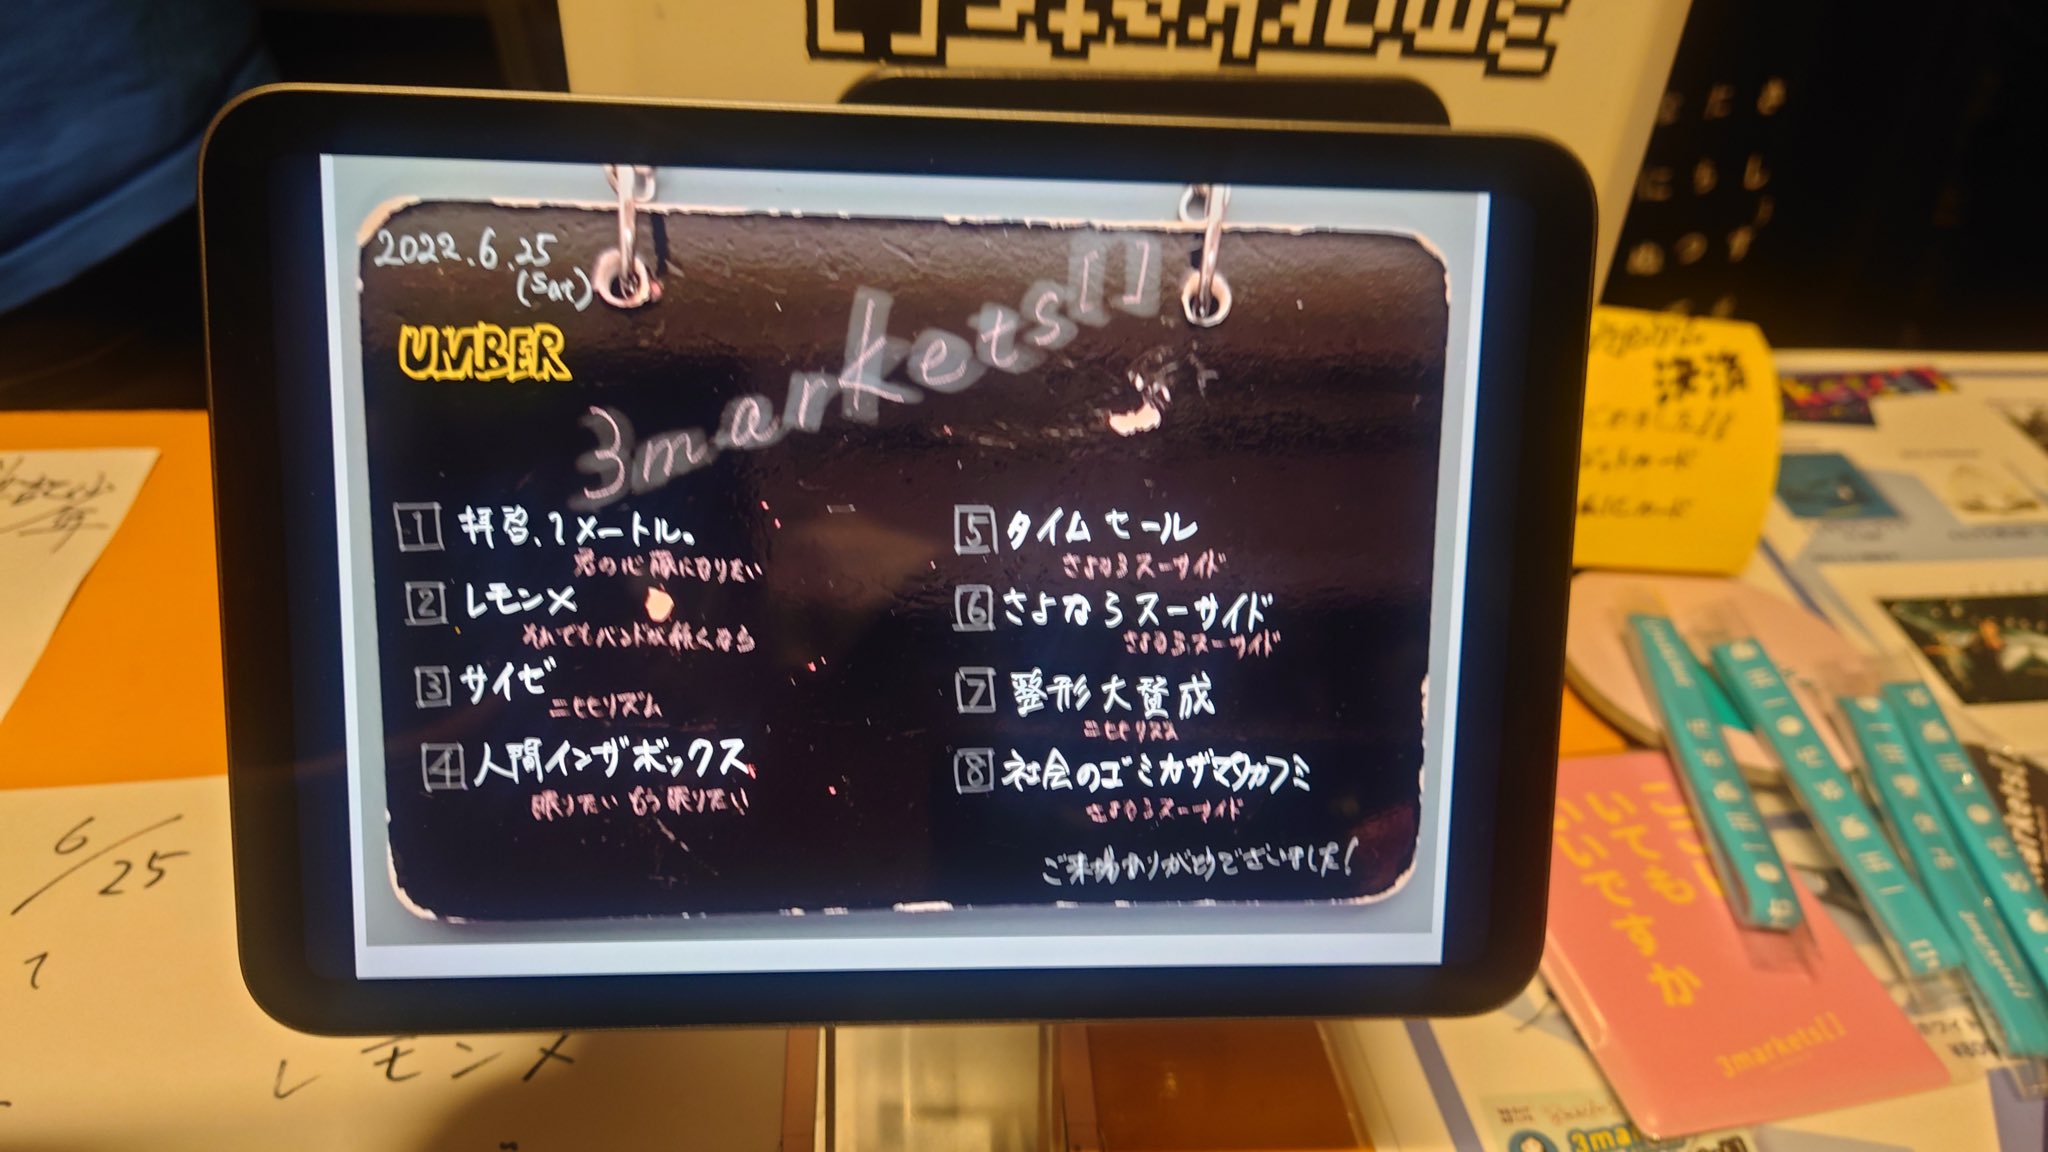 2022.6.25
(Sat)
UMBER
3markets[]
1 拝啓、1メートル。
君の心臓になりたい
2 レモン×
それでもバンドが続くなら
3 サイゼ
ニヒヒリズム
4 人間インザボックス
眠りたい もう眠りたい
5 タイムセール
さよならスーサイド
6 さよならスーサイド
さよならスーサイド
7 整形大賛成
ニヒヒリズム
8 社会のゴミカザマタカフミ
さよならスーサイド
ご来場ありがとうございました!
6/25
レモン×
決済
ここに
いても
いいですか
3markets[]